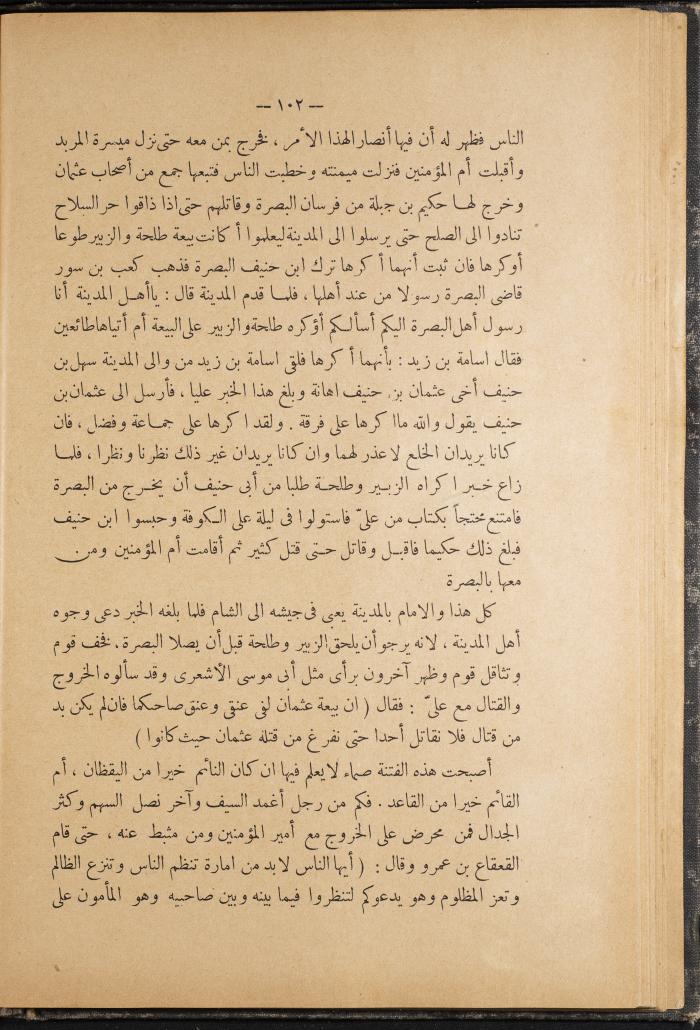 — ١٠٢ —
الناس فظهر له أن فيها أنصارالهذا الأمر ، فخرج بمن معه حتى نزل ميسرة المربد
وأقبلت أم المؤمنين فنزلت ميمنته وخطبت الناس فتبعها جمع من أصحاب عثمان
وخرج لها حكيم بن جبلة من فرسان البصرة وقاتلهم حتى اذا ذاقوا حر السلاح
تنادوا الى الصلح حتى يرسلوا الى المدينة ليعلموا أ كانت بيعة طلحة والزبير طوعا
أوكرها فان ثبت أنهما أ كرها ترك ابن حنيف البصرة فذهب كعب بن سور
قاضى البصرة رسولا من عند أهلها ، فلما قدم المدينة قال : ياأهل المدينة أنا
رسول أهل البصرة اليكم أسألكم أؤكره طلحة والزبير على البيعة أم أتياها طائعين
فقال اسامة بن زيد : بأنهما أ كرها فلقى اسامة بن زيد من والى المدينة سهل بن
حنيف أخى عثمان بن حنيف اهانة وبلغ هذا الخبر عليا ، فأرسل الى عثمان بن
حنيف يقول والله ماا كرها على فرقة . ولقد ا كرها على جماعة وفضل ، فان
كانا يريدان الخلع لا عذر لهما وان كانا يريدان غير ذلك نظرنا ونظرا ، فلما
زاع خبر ا كراه الزبير وطلحة طلبا من أبى حنيف أن يخرج من البصرة
فامتنع محتجاً بكتاب من علىّ فاستولوا فى ليلة على الكوفة وحبسوا ابن حنيف
فبلغ ذلك حكيما فاقبل وقاتل حتى قتل كثير ثم أقامت أم المؤمنين ومن
معها بالبصرة
كل هذا والامام بالمدينة يعبى فى جيشه الى الشام فلما بلغه الخبر دعى وجوه
أهل المدينة ، لانه يرجو أن يلحق الزبير وطلحة قبل أن يصلا البصرة ، فخف قوم
وتثاقل قوم وظهر آخرون برأى مثل أبى موسى الأشعرى وقد سألوه الخروج
والقتال مع علىّ : فقال ( ان بيعة عثمان لفى عنقى وعنق صاحبكما فان لم يكن بد
من قتال فلا نقاتل أحدا حتى نفرغ من قتله عثمان حيث كانوا )
أصبحت هذه الفتنة صماء لا يعلم فيها ان كان النائم خيرا من اليقظان ، أم
القائم خيرا من القاعد . فكم من رجل أغمد السيف وآخر نصل السهم وكثر
الجدال فمن محرض على الخروج مع أمير المؤمنين ومن مثبط عنه ، حتى قام
القعقاع بن عمرو وقال : ( أيها الناس لابد من امارة تنظم الناس وتنزع الظالم
وتعز المظلوم وهو يدعوكم لتنظروا فيما بينه وبين صاحبيه وهو المأمون على